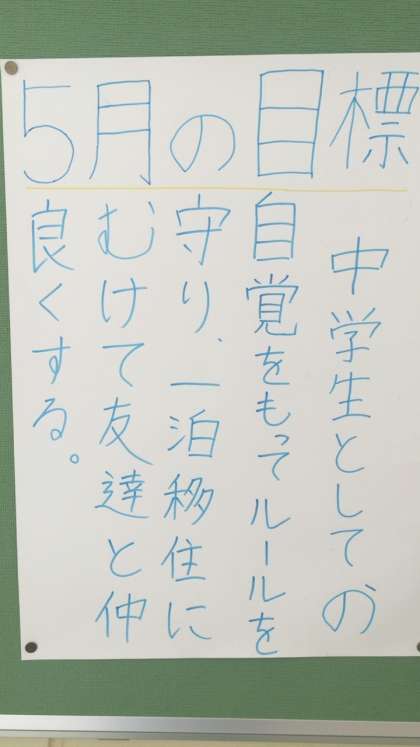 5月の目標
中学生としての
自覚をもってルールを
守り、一泊移住に
むけて友達と仲
良くする。